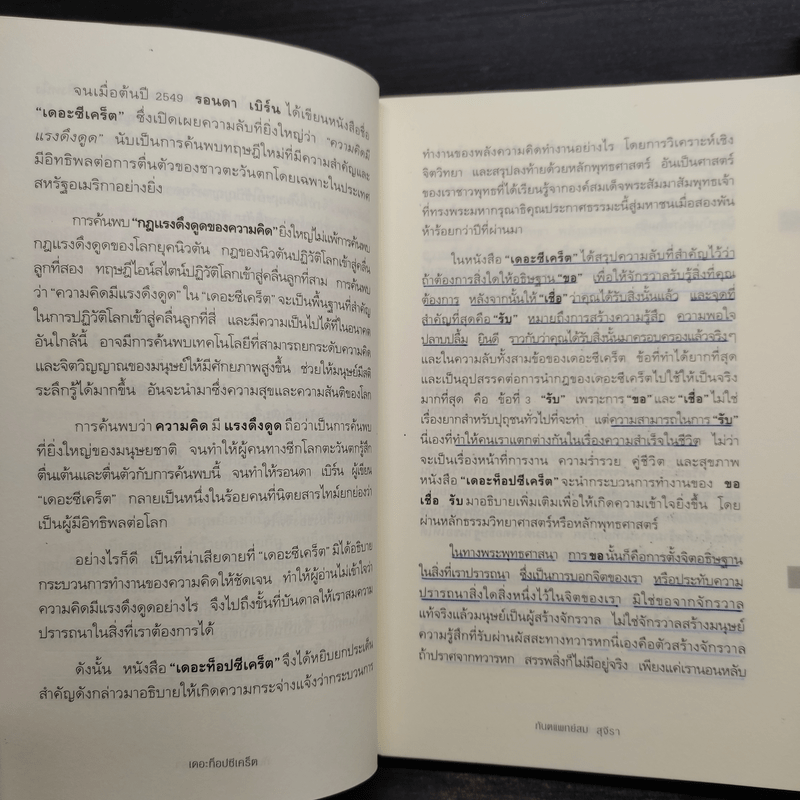 จนเมื่อต้นปี 2549 รอนดา เบิร์น ได้เขียนหนังสือชื่อ
“เดอะซีเคร็ต” ซึ่งเปิดเผยความลับที่ยิ่งใหญ่ว่า “ความคิดมี
แรงดึงดูด” นับเป็นการค้นพบทฤษฎีใหม่ที่มีความสำคัญและ
มีอิทธิพลต่อการตื่นตัวของชาวตะวันตกโดยเฉพาะในประเทศ
สหรัฐอเมริกาอย่างยิ่ง
การค้นพบ “กฎแรงดึงดูดของความคิด” ยิ่งใหญ่ไม่แพ้การค้นพบ
กฎแรงดึงดูดของโลกยุคนิวตัน กฎของนิวตันปฏิวัติโลกเข้าสู่คลื่น
ลูกที่สอง ทฤษฎีไอน์สไตน์ปฏิวัติโลกเข้าสู่คลื่นลูกที่สาม การค้นพบ
ว่า “ความคิดมีแรงดึงดูด” ใน “เดอะซีเคร็ต” จะเป็นพื้นฐานที่สำคัญ
ในการปฏิวัติโลกเข้าสู่คลื่นลูกที่สี่ และมีความเป็นไปได้ที่ในอนาคต
อันใกล้นี้ อาจมีการค้นพบเทคโนโลยีที่สามารถยกระดับความคิด
และจิตวิญญาณของมนุษย์ให้มีศักยภาพสูงขึ้น ช่วยให้มนุษย์มีสติ
ระลึกรู้ได้มากขึ้น อันจะนำมาซึ่งความสุขและความสันติของโลก
การค้นพบว่า ความคิด มี แรงดึงดูด ถือว่าเป็นการค้นพบ
ที่ยิ่งใหญ่ของมนุษยชาติ จนทำให้ผู้คนทางซีกโลกตะวันตกรู้สึก
ตื่นเต้นและตื่นตัวกับการค้นพบนี้ จนทำให้รอนดา เบิร์น ผู้เขียน
“เดอะซีเคร็ต” กลายเป็นหนึ่งในร้อยคนที่นิตยสารไทม์ยกย่องว่า
เป็นผู้มีอิทธิพลต่อโลก
อย่างไรก็ดี เป็นที่น่าเสียดายที่ “เดอะซีเคร็ต” มิได้อธิบาย
กระบวนการทำงานของความคิดให้ชัดเจน ทำให้ผู้อ่านไม่เข้าใจว่า
ความคิดมีแรงดึงดูดอย่างไร จึงไปถึงขั้นที่บันดาลให้เราสมความ
ปรารถนาในสิ่งที่เราต้องการได้
ดังนั้น หนังสือ “เดอะท็อปซีเคร็ต” จึงได้หยิบยกประเด็น
สำคัญดังกล่าวมาอธิบายให้เกิดความกระจ่างแจ้งว่ากระบวนการ
เดอะท็อปซีเคร็ต
ทำงานของพลังความคิดทำงานอย่างไร โดยการวิเคราะห์เชิง
จิตวิทยา และสรุปลงท้ายด้วยหลักพุทธศาสตร์ อันเป็นศาสตร์
ของเราชาวพุทธที่ได้เรียนรู้จากองค์สมเด็จพระสัมมาสัมพุทธเจ้า
ที่ทรงพระมหากรุณาธิคุณประกาศธรรมะนี้สู่มหาชนเมื่อสองพัน
ห้าร้อยกว่าปีที่ผ่านมา
ในหนังสือ “เดอะซีเคร็ต” ได้สรุปความลับที่สำคัญไว้ว่า
ถ้าต้องการสิ่งใดให้อธิษฐาน “ขอ” เพื่อให้จักรวาลรับรู้สิ่งที่คุณ
ต้องการ หลังจากนั้นให้ “เชื่อ” ว่าคุณได้รับสิ่งนั้นแล้ว และจุดที่
สำคัญที่สุดคือ “รับ” หมายถึงการสร้างความรู้สึก ความพอใจ
ปลาบปลื้ม ยินดี ราวกับว่าคุณได้รับสิ่งนั้นมาครอบครองแล้วจริงๆ
และในความลับทั้งสามข้อของเดอะซีเคร็ต ข้อที่ทำได้ยากที่สุด
และเป็นอุปสรรคต่อการนำกฎของเดอะซีเคร็ตไปใช้ให้เป็นจริง
มากที่สุด คือ ข้อที่ 3 “รับ” เพราะการ “ขอ” และ “เชื่อ” ไม่ใช่
เรื่องยากสำหรับปุถุชนทั่วไปที่จะทำ แต่ความสามารถในการ “รับ”
นี่เองที่ทำให้คนเราแตกต่างกันในเรื่องความสำเร็จในชีวิต ไม่ว่า
จะเป็นเรื่องหน้าที่การงาน ความร่ำรวย คู่ชีวิต และสุขภาพ
หนังสือ “เดอะท็อปซีเคร็ต” จะนำกระบวนการทำงานของ ขอ
เชื่อ รับ มาอธิบายเพิ่มเติมเพื่อให้เกิดความเข้าใจยิ่งขึ้น โดย
ผ่านหลักธรรมวิทยาศาสตร์หรือหลักพุทธศาสตร์
ในทางพระพุทธศาสนา การ ขอ นั้นก็คือการตั้งจิตอธิษฐาน
ในสิ่งที่เราปรารถนา ซึ่งเป็นการบอกจิตของเรา หรือประทับความ
ปรารถนาสิ่งใดสิ่งหนึ่งไว้ในจิตของเรา มิใช่ขอจากจักรวาล
แท้จริงแล้วมนุษย์เป็นผู้สร้างจักรวาล ไม่ใช่จักรวาลสร้างมนุษย์
ความรู้สึกที่รับผ่านผัสสะทางทวารหกนี่เองคือตัวสร้างจักรวาล
ถ้าปราศจากทวารหก สรรพสิ่งก็ไม่มีอยู่จริง เพียงแค่เรานอนหลับ
ทันตแพทย์สม สุจีรา